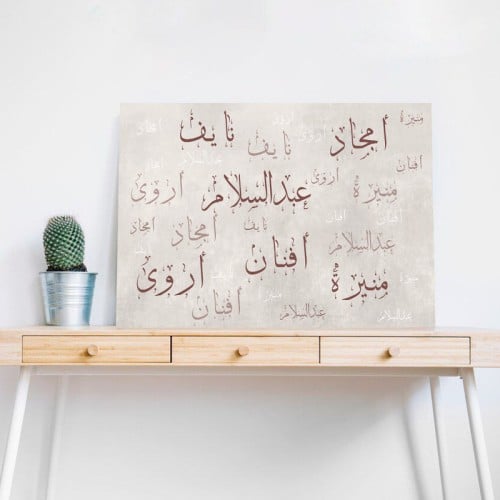 منيرة
أمجاد
أروى
نايف
أمجاد
نايف
أفنان
عبدالسلام
أروى
منيرة
أروى
عبدالسلام
أفنان
أمجاد
نايف
أمجاد
عبدالسلام
أفنان
أروى
منيرة
منيرة
أفنان
عبدالسلام
عبدالسلام